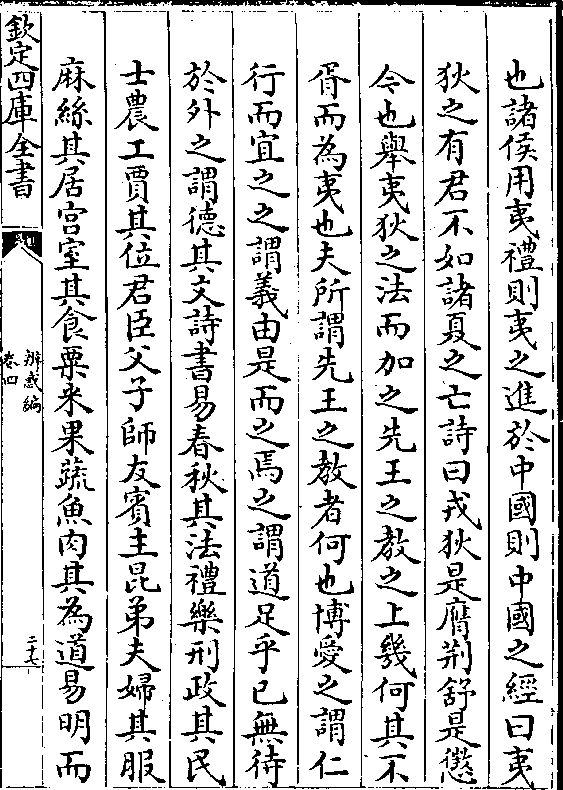 也諸侯用夷禮則夷之進於中國則中國之經曰夷
狄之有君不如諸夏之亡詩曰戎狄是膺荆舒是懲
今也舉夷狄之法而加之先王之教之上幾何其不
胥而為夷也夫所謂先王之教者何也博愛之謂仁
行而宜之之謂義由是而之焉之謂道足乎已無待
於外之謂德其文詩書易春秋其法禮樂刑政其民
士農工賈其位君臣父子師友賓主昆弟夫婦其服
麻絲其居宫室其食粟米果蔬魚肉其為道易明而
欽定四庫全書
辨惑編
卷四
二十七